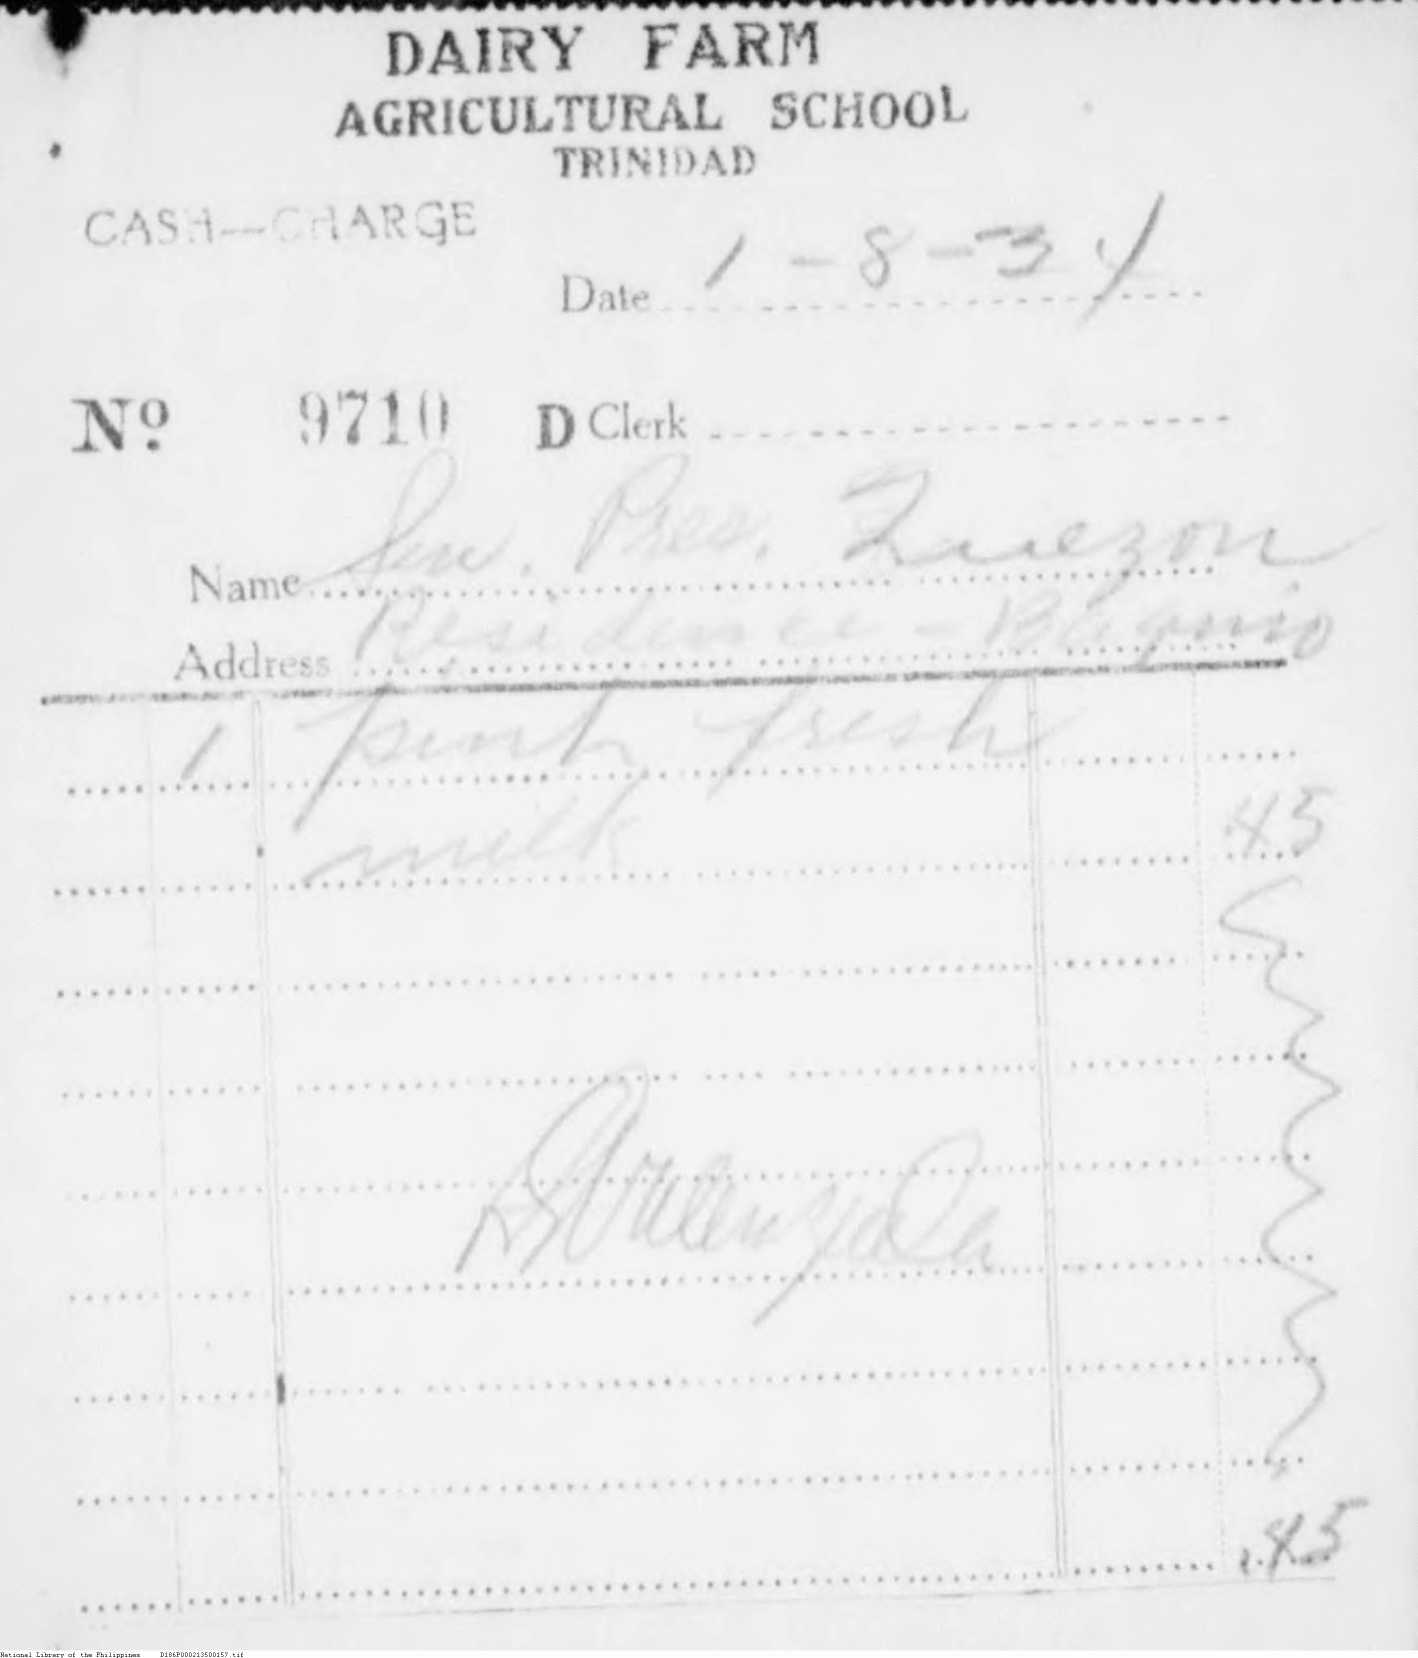 DAIRY FARM
AGRICULTURAL SCHOOL
TRINIDAD
CASH—CHARGE
Date 1-8-34
No 9710 D Clerk
Name Sen. Pres. Quezon
Address Residence - Baguio
1 pint fresh
milk .45
Valenzuela
.45
National Library of the Philippines D186P000213500157.tif